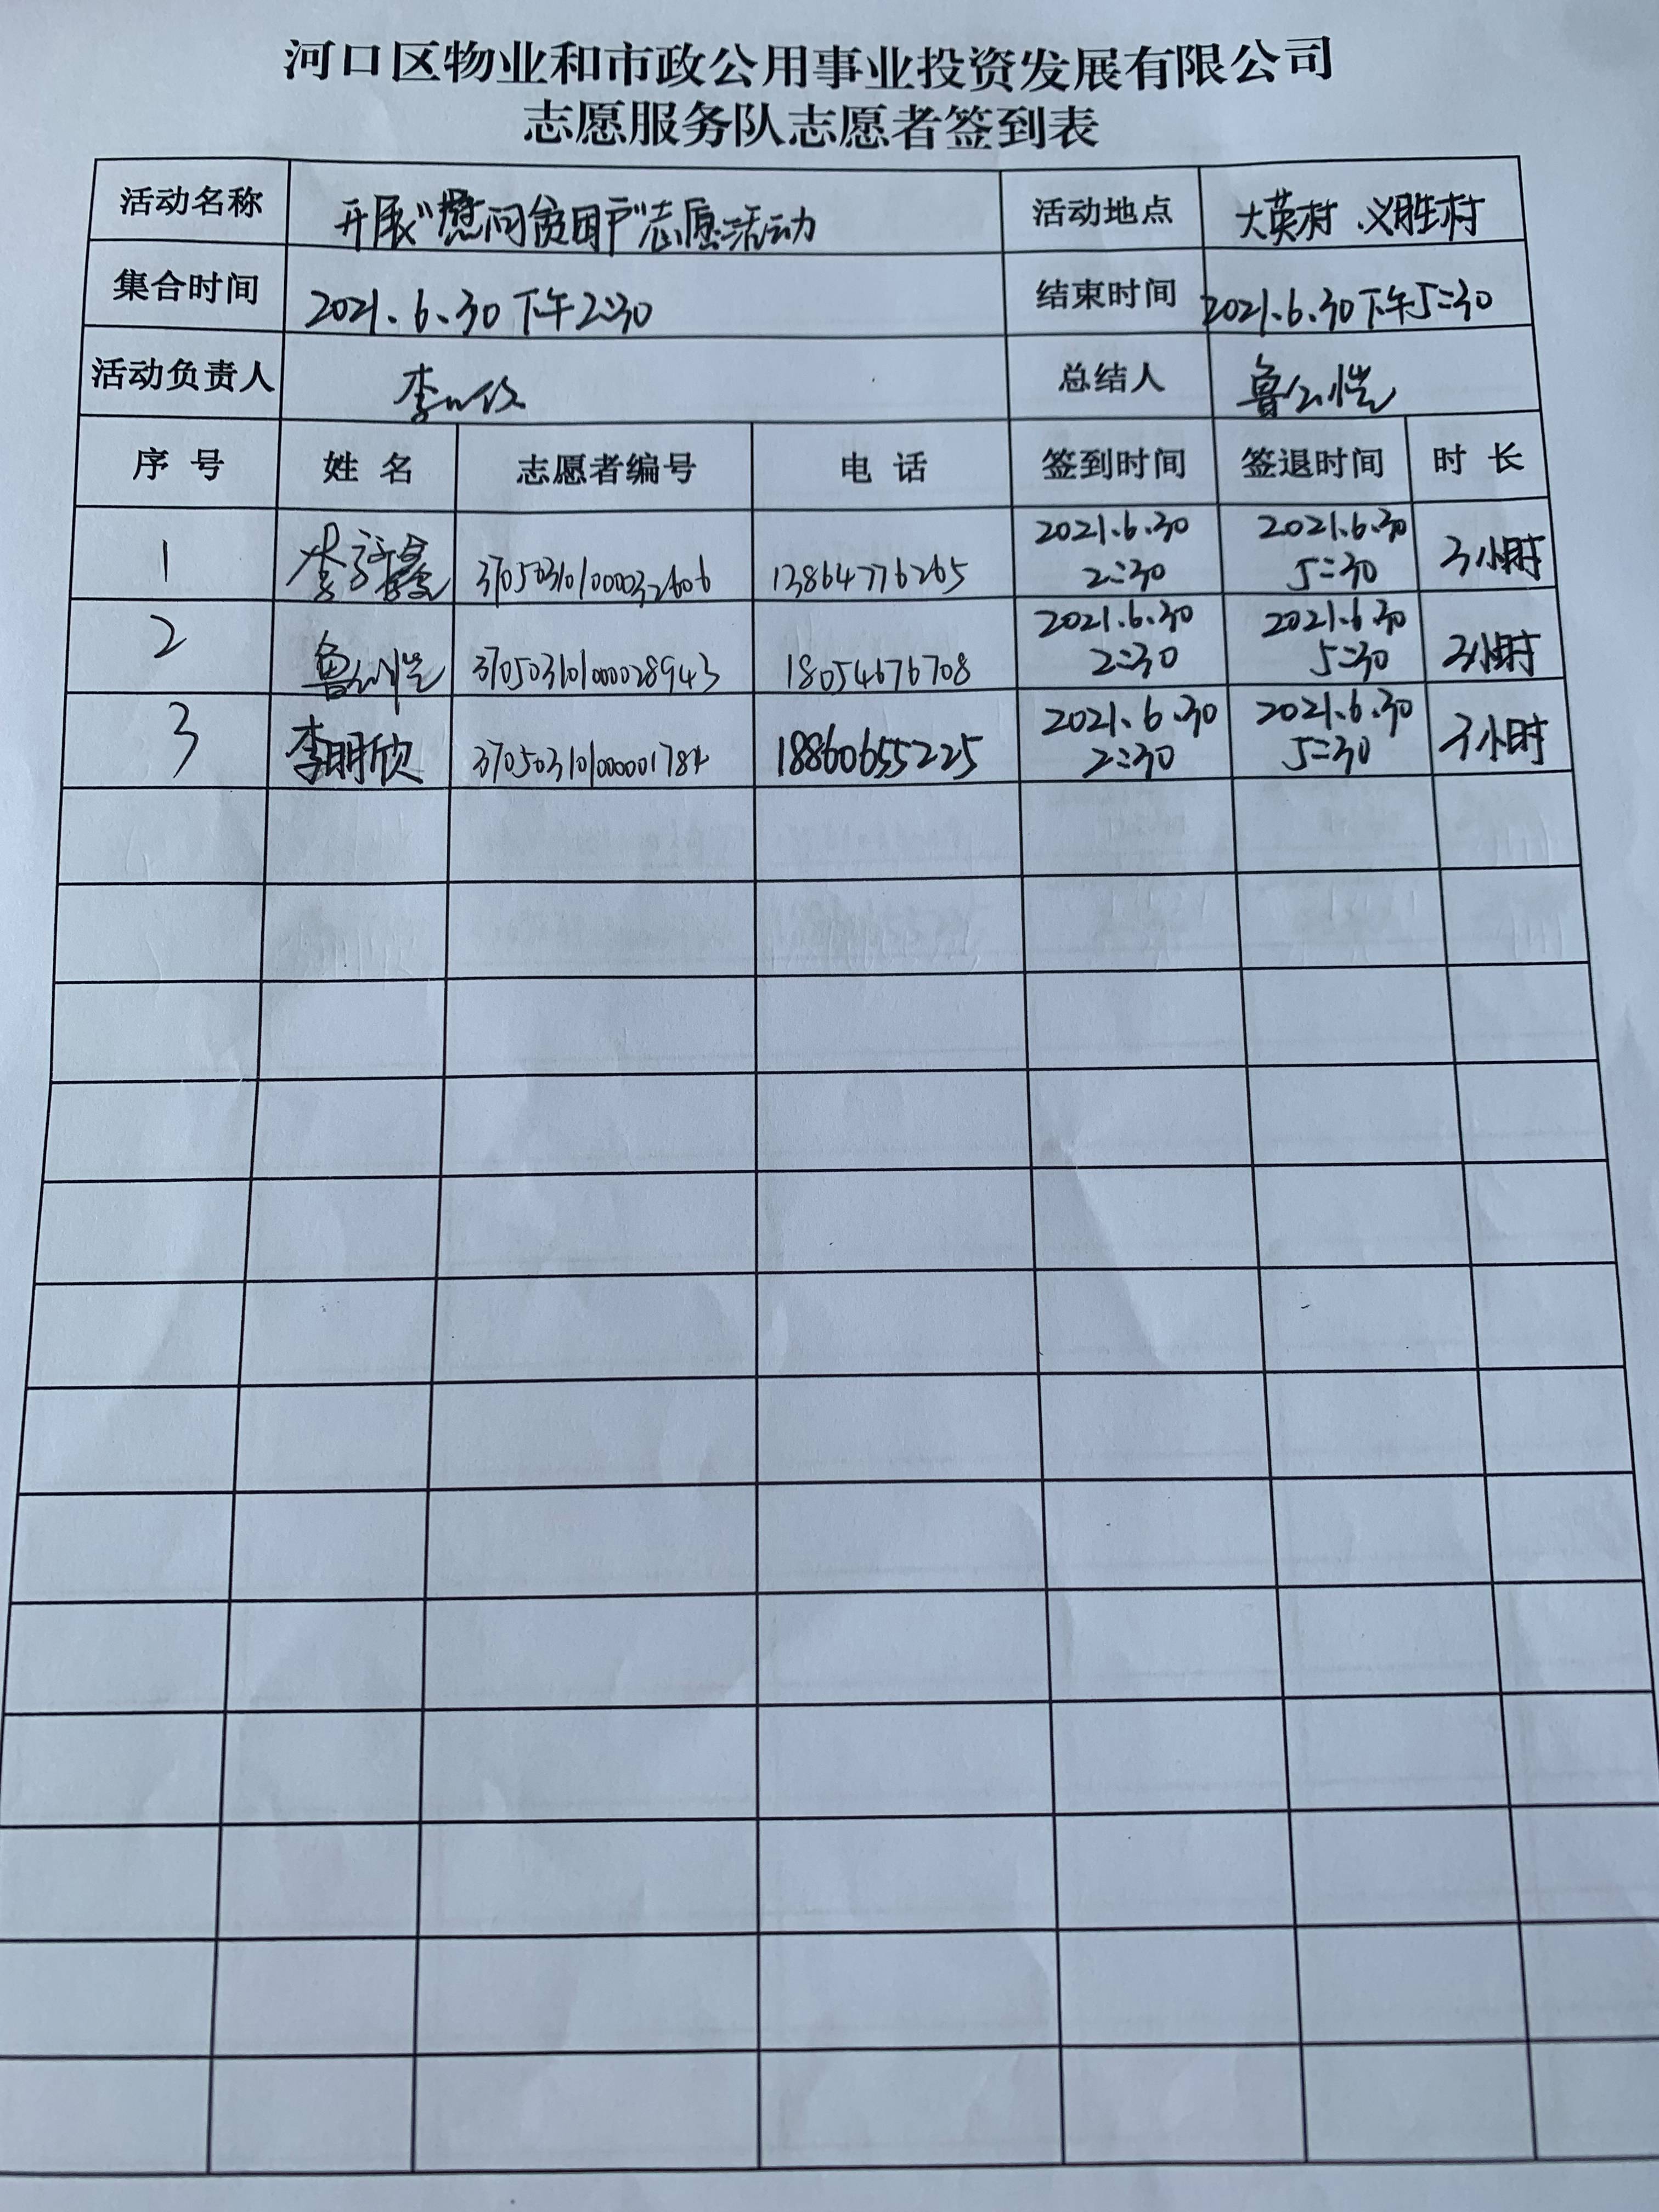 河口区物业和市政公用事业投资发展有限公司
志愿服务队志愿者签到表
活动名称 开展"慰问贫困户"志愿活动 活动地点 大英村、义胜村
集合时间 2021.6.30下午2:30 结束时间 2021.6.30下午5:30
活动负责人 李 总结人 鲁公恺
序号 姓名 志愿者编号 电话 签到时间 签退时间 时长
1 370503101000032606 13864776265 2021.6.30 2:30 2021.6.30 5:30 3小时
2 鲁公恺 370503101000028943 18054676708 2021.6.30 2:30 2021.6.30 5:30 3小时
3 李明欣 370503101000001784 18860655225 2021.6.30 2:30 2021.6.30 5:30 3小时